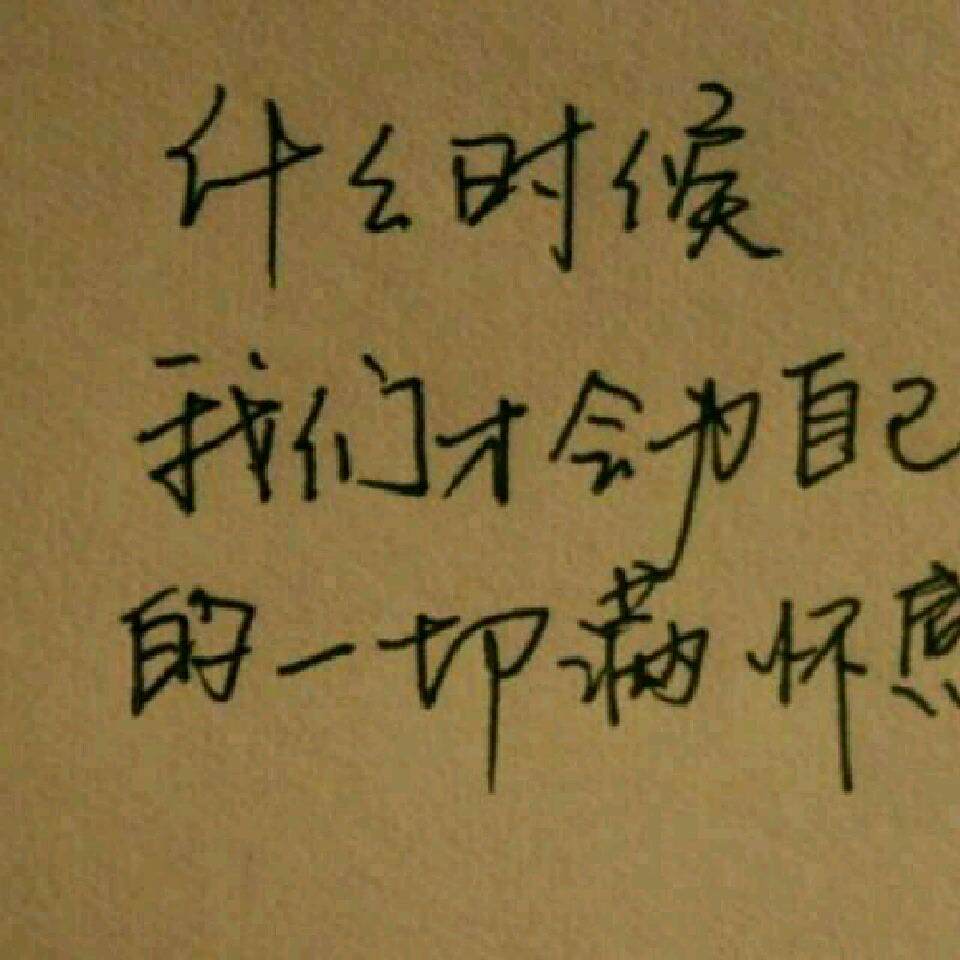 什么时候
我们才会为自己
的一切满怀感